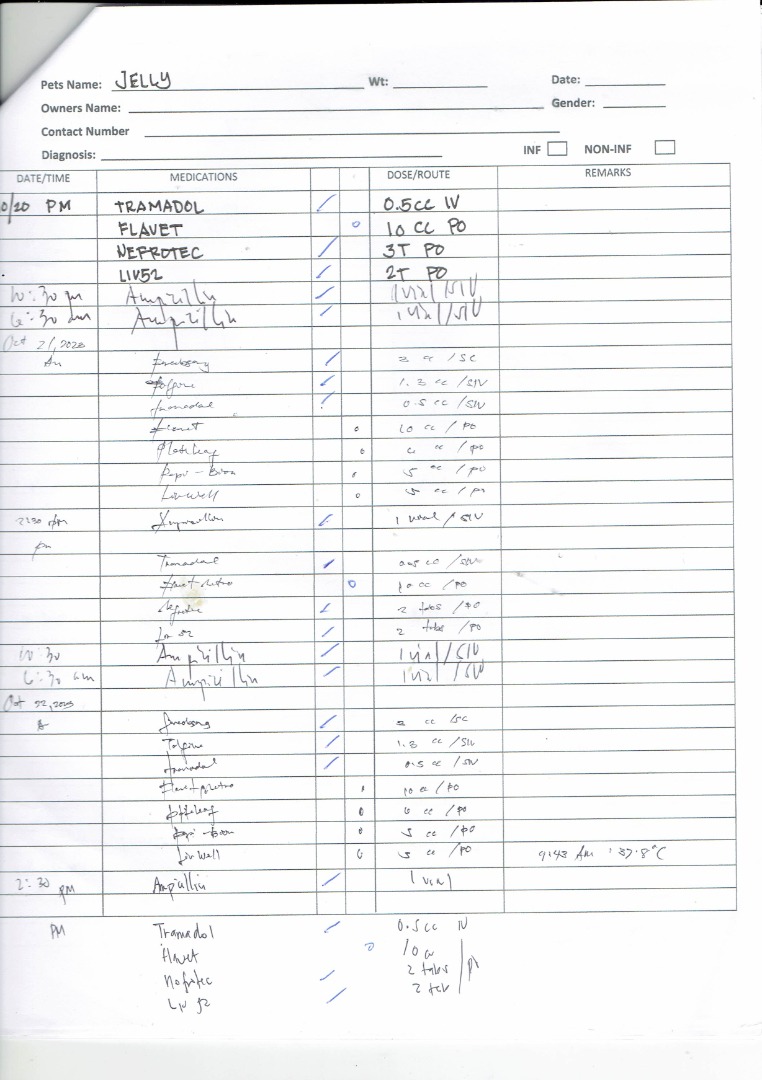 Pets Name: JELLY Wt: Date:
Owners Name: Gender:
Contact Number
Diagnosis: INF NON-INF
DATE/TIME MEDICATIONS DOSE/ROUTE REMARKS
0/20 PM TRAMADOL 0.5cc IV
FLAVET 10 cc PO
NEFROTEC 3T PO
LIV52 2T PO
10:30 pm Ampicillin 1 vial / SIV
6:30 am Ampicillin 1 vial / SIV
Oct 21, 2025
Am 2 cc / SC
Tolfine 1.3 cc / SIV
Tramadol 0.5 cc / SIV
Flavet 10 cc / PO
cc / PO
Papi - Bion 5 cc / PO
Livwell 5 cc / PO
2:30 pm 1 vial / SIV
pm
Tramadol 0.5 cc / SIV
10 cc / PO
2 tabs / PO
Liv 52 2 tabs / PO
10:30 Ampicillin 1 vial / SIV
6:30 am Ampicillin 1 vial / SIV
Oct 22, 2025
2 cc / SC
Tolfine 1.3 cc / SIV
Tramadol 0.5 cc / SIV
10 cc / PO
6 cc / PO
Papi - Bion 5 cc / PO
Liv Well 5 cc / PO 9:43 Am : 37.8°C
2:30 PM Ampicillin 1 vial
PM Tramadol 0.5 cc IV
Flavet 10 cc
Nefrotec 2 tabs
Liv 52 2 tab